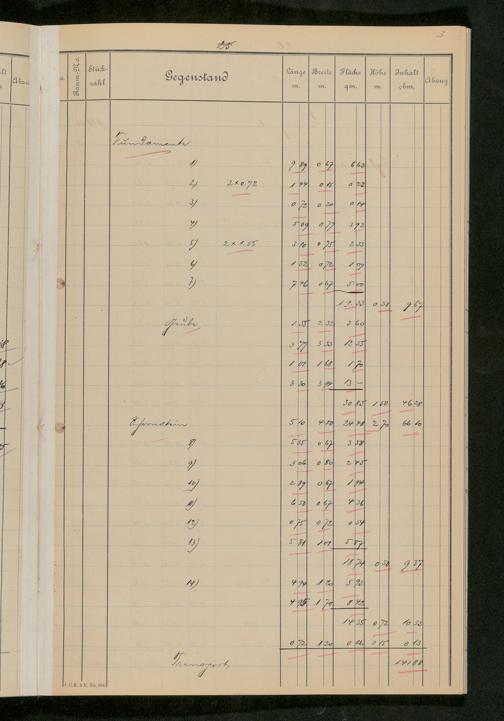 3
25
Raum-No. Stückzahl Gegenstand Länge m. Breite m. Fläche qm. Höhe m. Inhalt cbm. Abzug
Fundamente
1) 9 89 0 67 6 63
2) 2 x 0.72 1 44 0 15 0 22
3) 0 72 0 20 0 14
4) 5 09 0 77 3 92
5) 2 x 1.55 3 10 0 75 2 33
6) 1 52 0 72 1 09
7) 7 46 0 67 5 00
19 33 0 50 9 67
Grube 1 55 2 32 3 60
3 77 3 33 12 55
1 01 1 68 1 70
3 30 3 94 13 –
30 85 1 50 46 28
5 10 4 80 24 48 2 70 66 10
8) 5 35 0 67 3 58
9) 3 06 0 80 2 45
10) 2 89 0 67 1 94
11) 6 50 0 67 4 36
12) 0 75 0 72 0 54
13) 5 81 1 01 5 87
18 74 0 50 9 37
14) 4 94 1 20 5 93
4 95 1 70 8 42
14 35 0 72 10 33
0 72 1 20 0 86 0 15 0 13
Transport 141 88